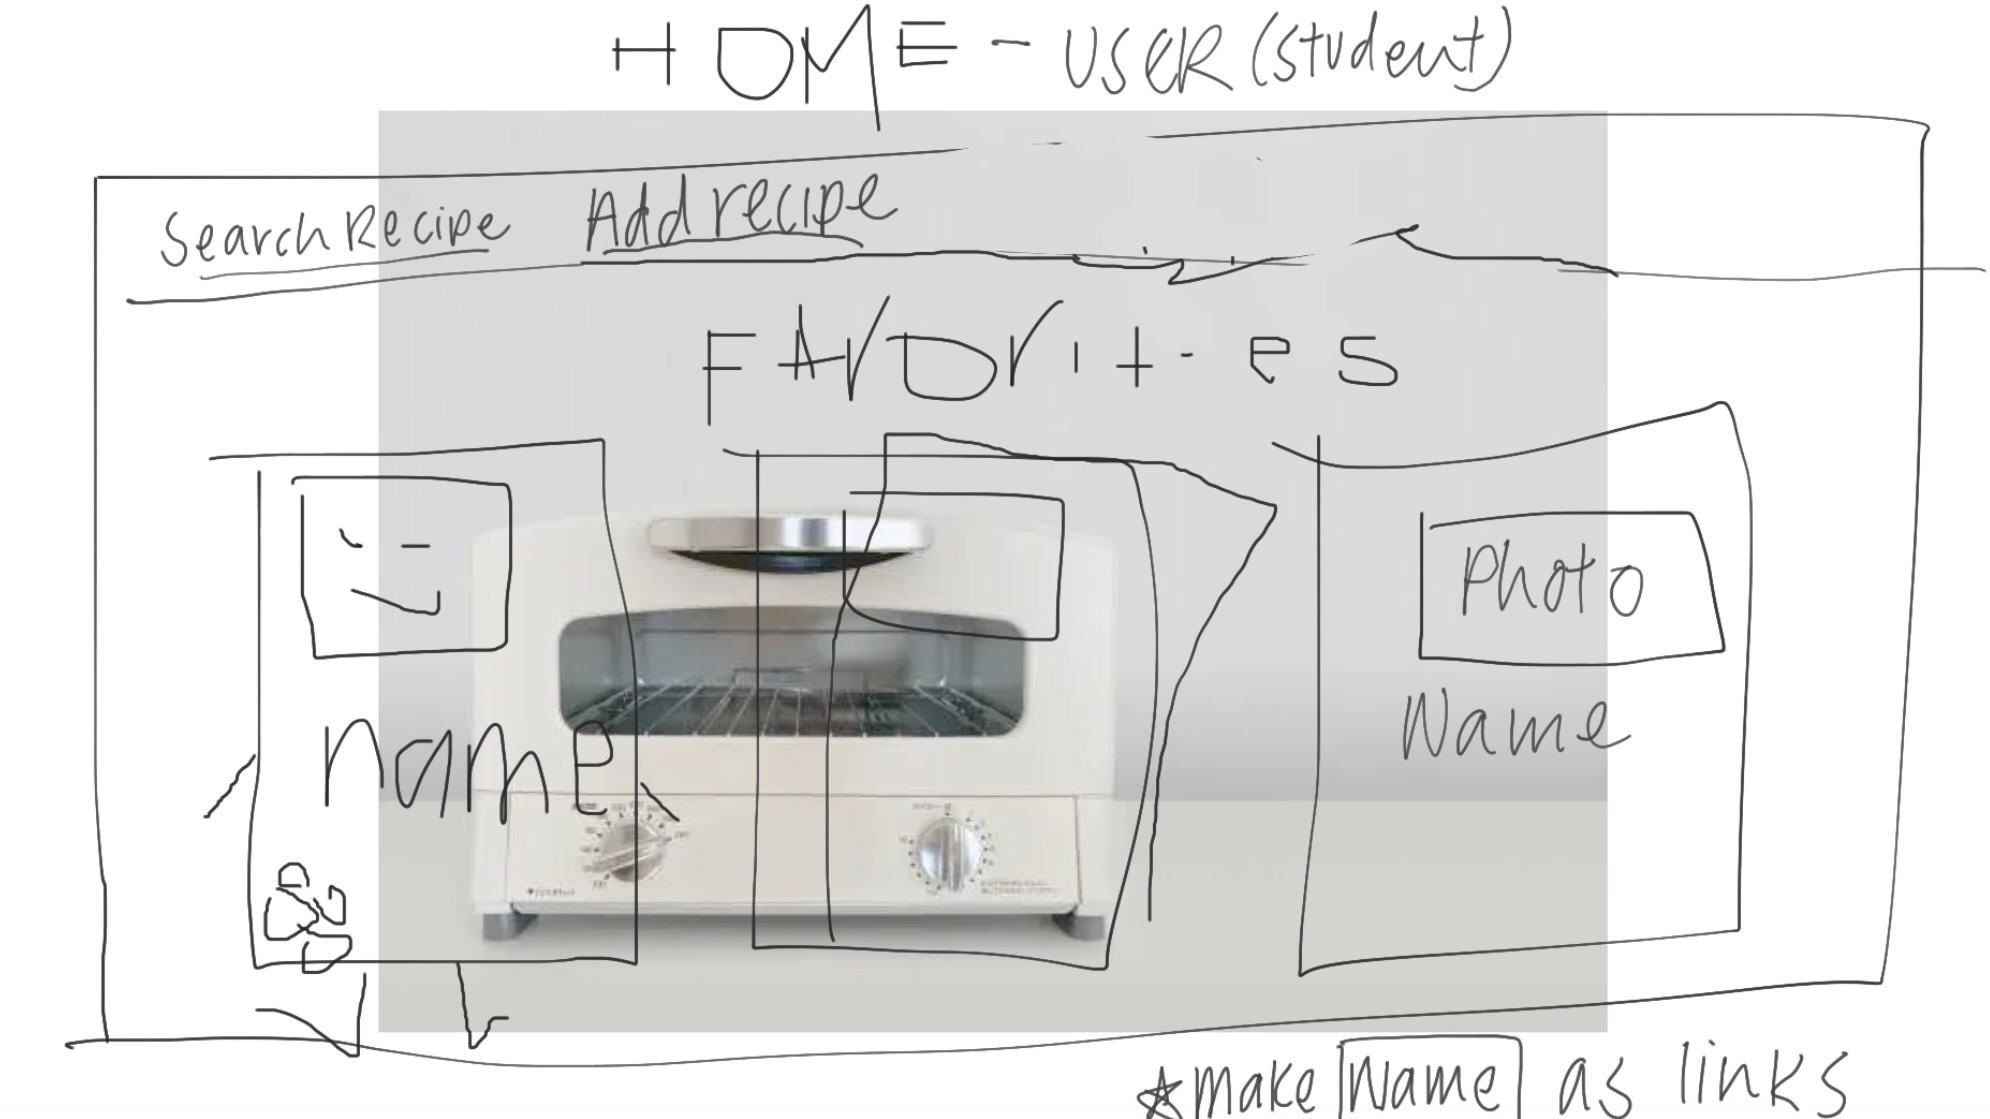 HOME - USER (student)
Search Recipe Add recipe
FAvOrit-es
Photo
name
Name
*make Name as links